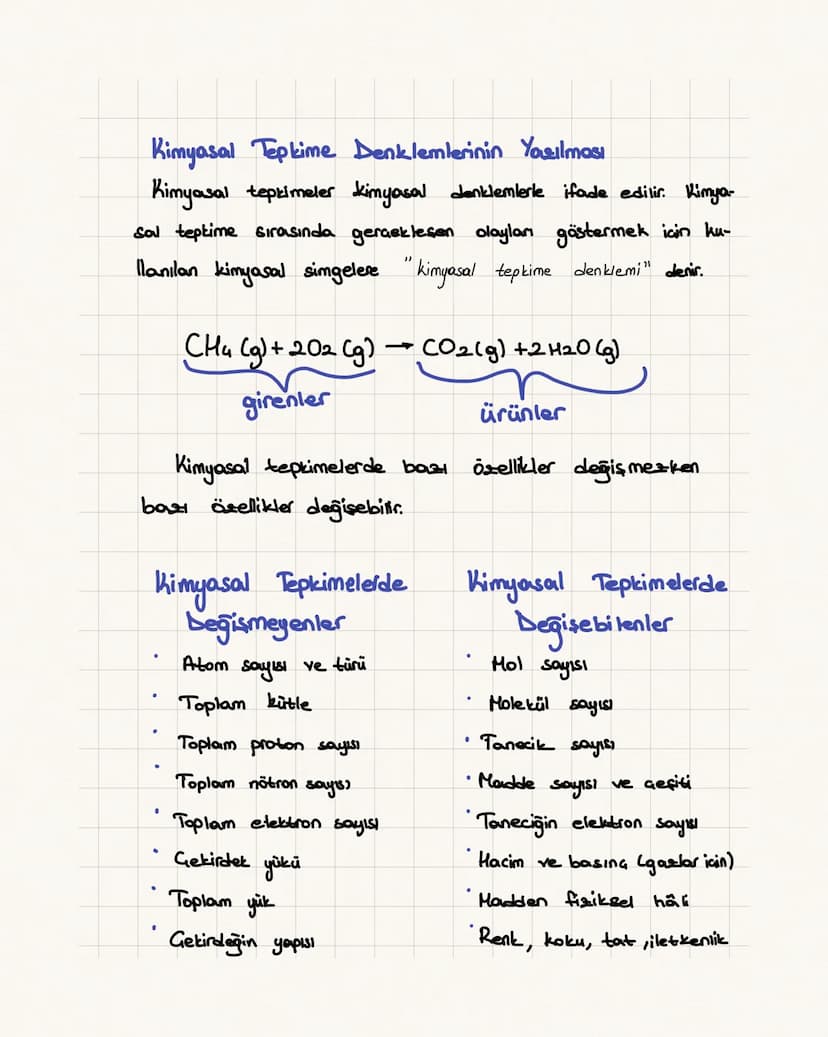 Kimyasal Tepkime Denklemlerinin Yazılması
Kimyasal tepkimeler kimyasal denklemlerle ifade edilir. Kimya-
sal tepkime sırasında gerçekleşen olayları göstermek için ku-
llanılan kimyasal simgelere "kimyasal tepkime denklemi" denir.
CH4 (g) + 2O2 (g) → CO2(g) + 2H2O (g)
girenler
ürünler
Kimyasal tepkimelerde bazı özellikler değişmezken
bazı özellikler değişebilir.
Kimyasal Tepkimelerde
Değişmeyenler
• Atom sayısı ve türü
• Toplam kütle
• Toplam proton sayısı
• Toplam nötron sayısı
• Toplam elektron sayısı
• Çekirdek yükü
• Toplam yük
• Çekirdeğin yapısı
Kimyasal Tepkimelerde
Değişebilenler
• Mol sayısı
• Molekül sayısı
• Tanecik sayısı
• Madde sayısı ve çeşiti
• Taneciğin elektron sayısı
• Hacim ve basınç (gazlar için)
• Madden fiziksel hâli
• Renk, koku, tat, iletkenlik